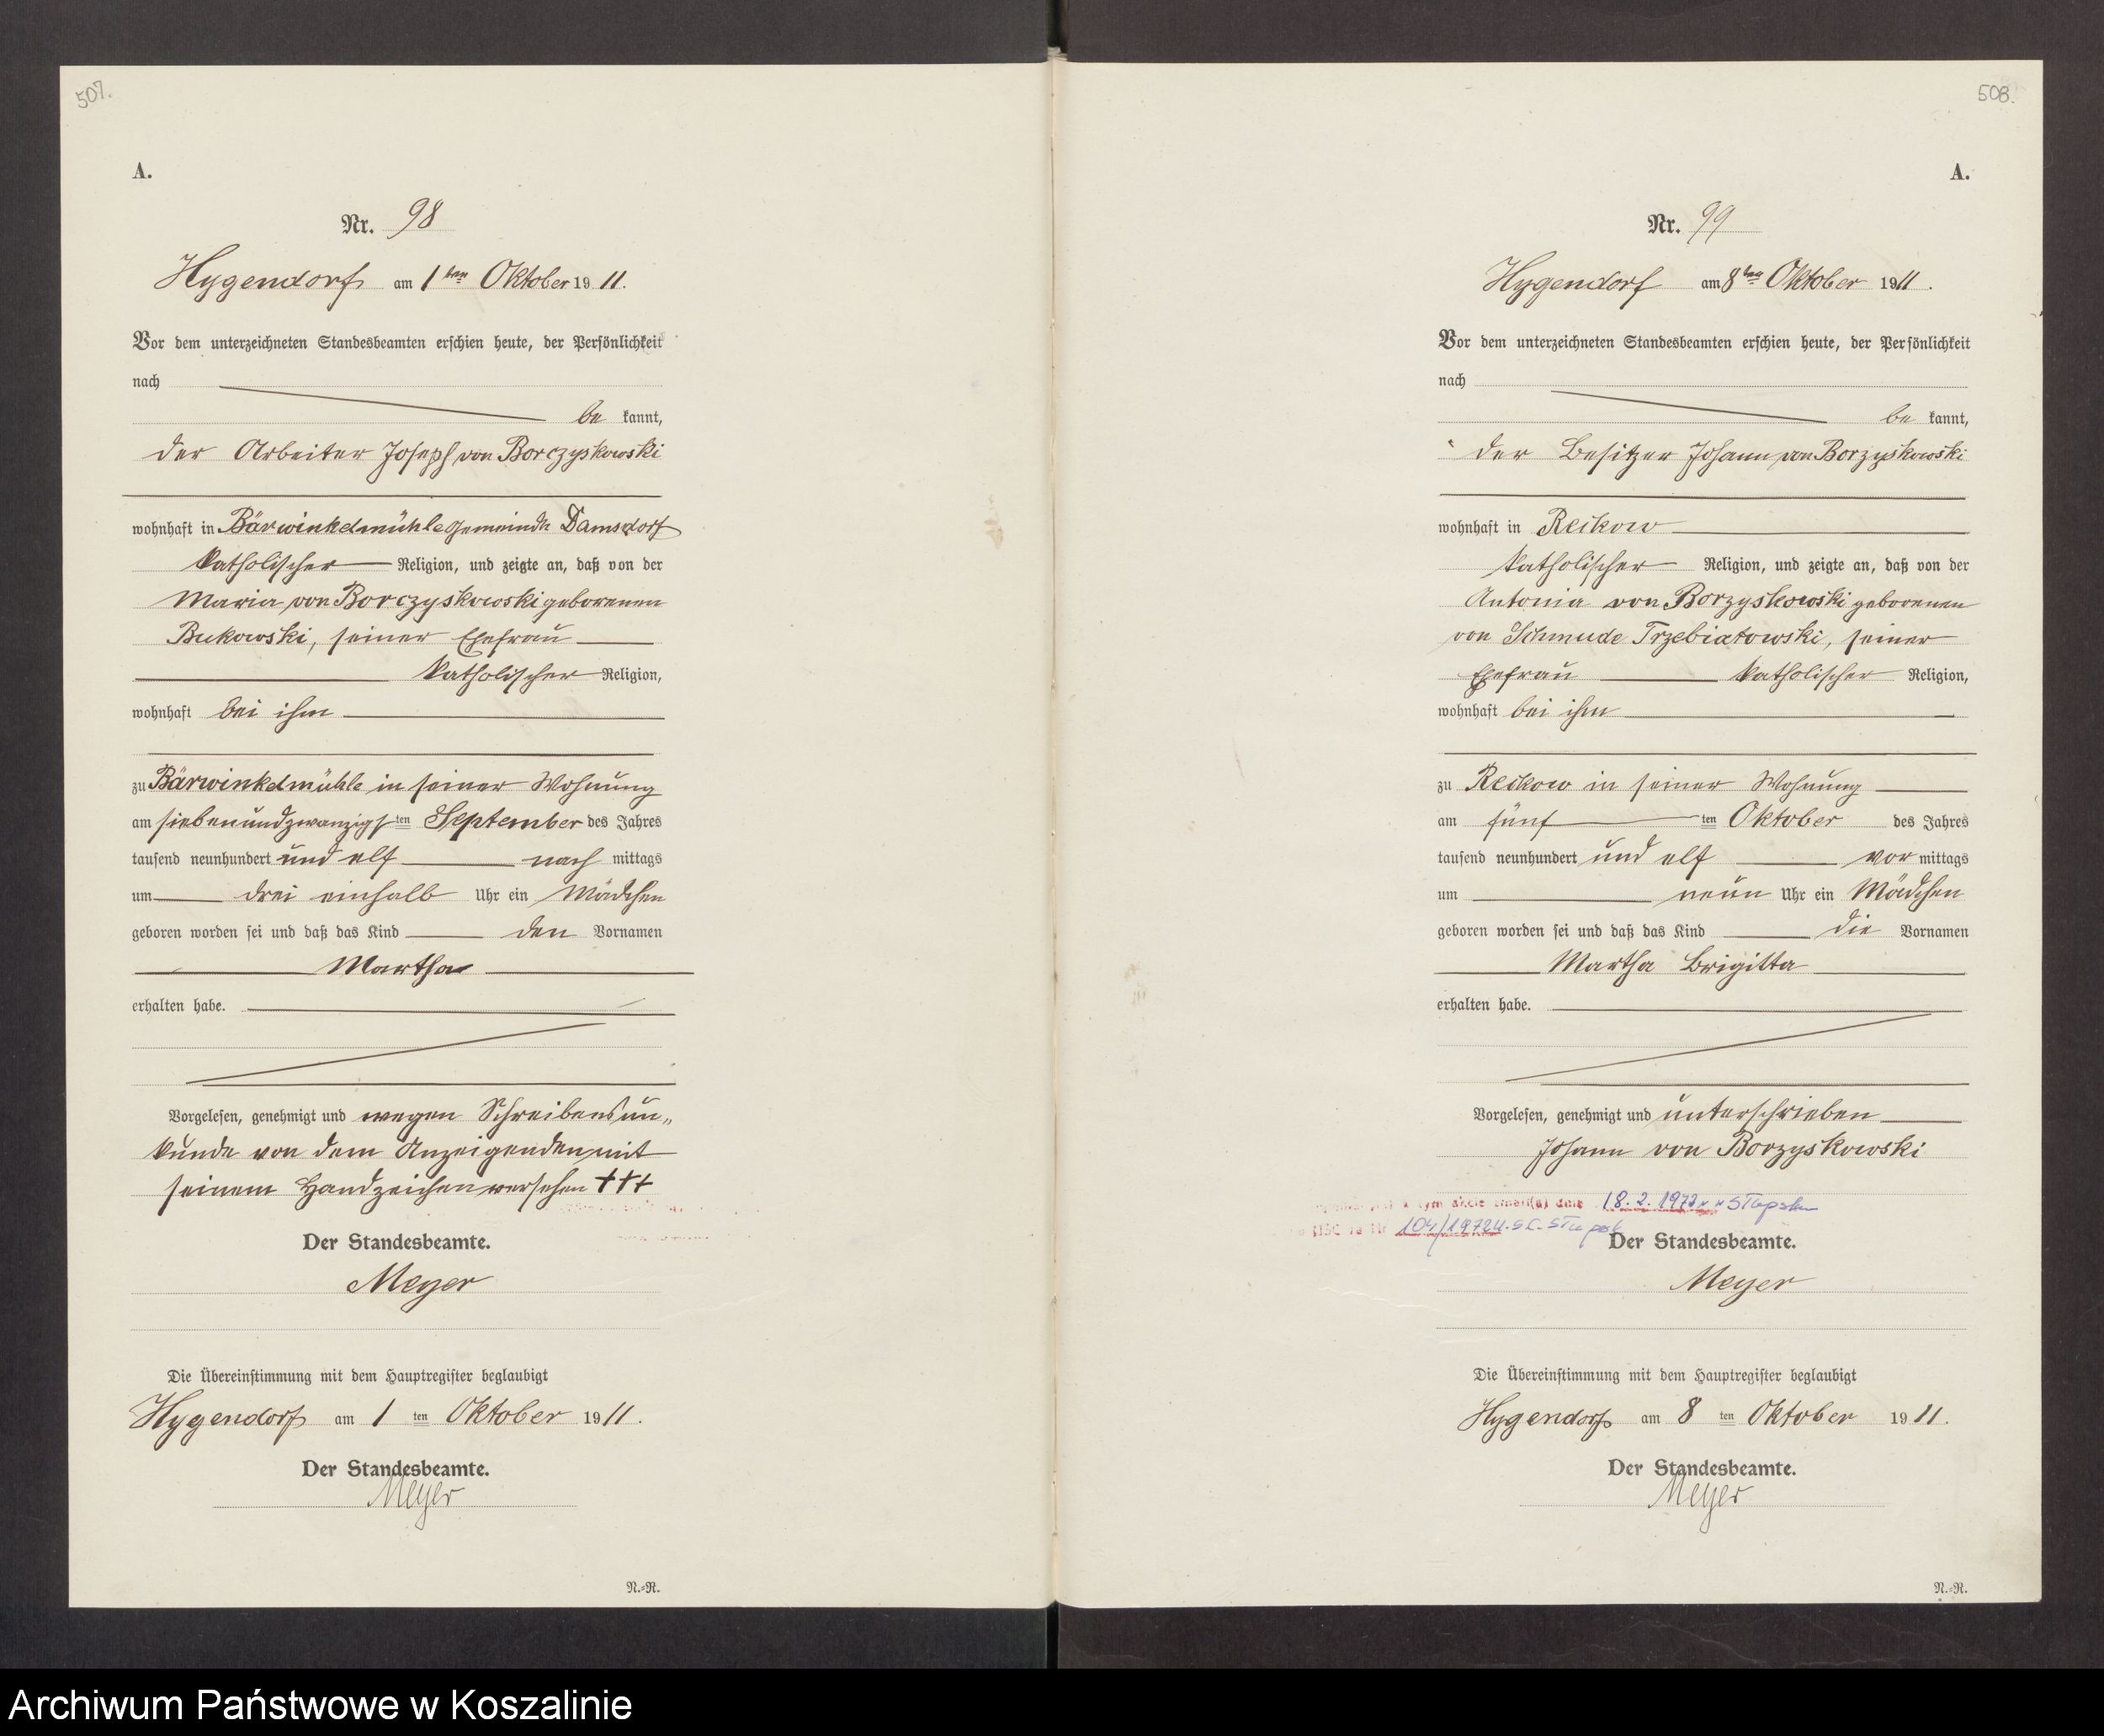 507.
A.
Nr. 98
Hygendorf am 1ten Oktober 1911.
Vor dem unterzeichneten Standesbeamten erschien heute, der Persönlichkeit
nach
be kannt,
der Arbeiter Joseph von Borczyskowski
wohnhaft in Bärwinkelmühle Gemeinde Damsdorf
katholischer Religion, und zeigte an, daß von der
Maria von Borczyskowski geborenen
Bukowski, seiner Ehefrau
katholischer Religion,
wohnhaft bei ihm
zu Bärwinkelmühle in seiner Wohnung
am siebenundzwanzigsten September des Jahres
tausend neunhundert und elf nach mittags
um drei einhalb Uhr ein Mädchen
geboren worden sei und daß das Kind den Vornamen
Martha
erhalten habe.
Vorgelesen, genehmigt und wegen Schreibensun„
kunde von dem Anzeigenden mit
seinem Handzeichen versehen +++
Der Standesbeamte.
Meyer
Die Übereinstimmung mit dem Hauptregister beglaubigt
Hygendorf am 1 ten Oktober 1911.
Der Standesbeamte.
Meyer
N.=R.
508.
A.
Nr. 99
Hygendorf am 8ten Oktober 1911.
Vor dem unterzeichneten Standesbeamten erschien heute, der Persönlichkeit
nach
be kannt,
der Besitzer Johann von Borzyskowski
wohnhaft in Reckow
katholischer Religion, und zeigte an, daß von der
Antonia von Borzyskowski geborenen
von Schmude Trzebiatowski, seiner
Ehefrau katholischer Religion,
wohnhaft bei ihm
zu Reckow in seiner Wohnung
am fünf ten Oktober des Jahres
tausend neunhundert und elf vor mittags
um neun Uhr ein Mädchen
geboren worden sei und daß das Kind die Vornamen
Martha Brigitta
erhalten habe.
Vorgelesen, genehmigt und unterschrieben
Johann von Borzyskowski
w tym akcie zmarł(a) dnia 18.2.1972 w Słupsku
104/1972 U.S.C. Słupsk
Der Standesbeamte.
Meyer
Die Übereinstimmung mit dem Hauptregister beglaubigt
Hygendorf am 8 ten Oktober 1911.
Der Standesbeamte.
Meyer
N.=R.
Archiwum Państwowe w Koszalinie